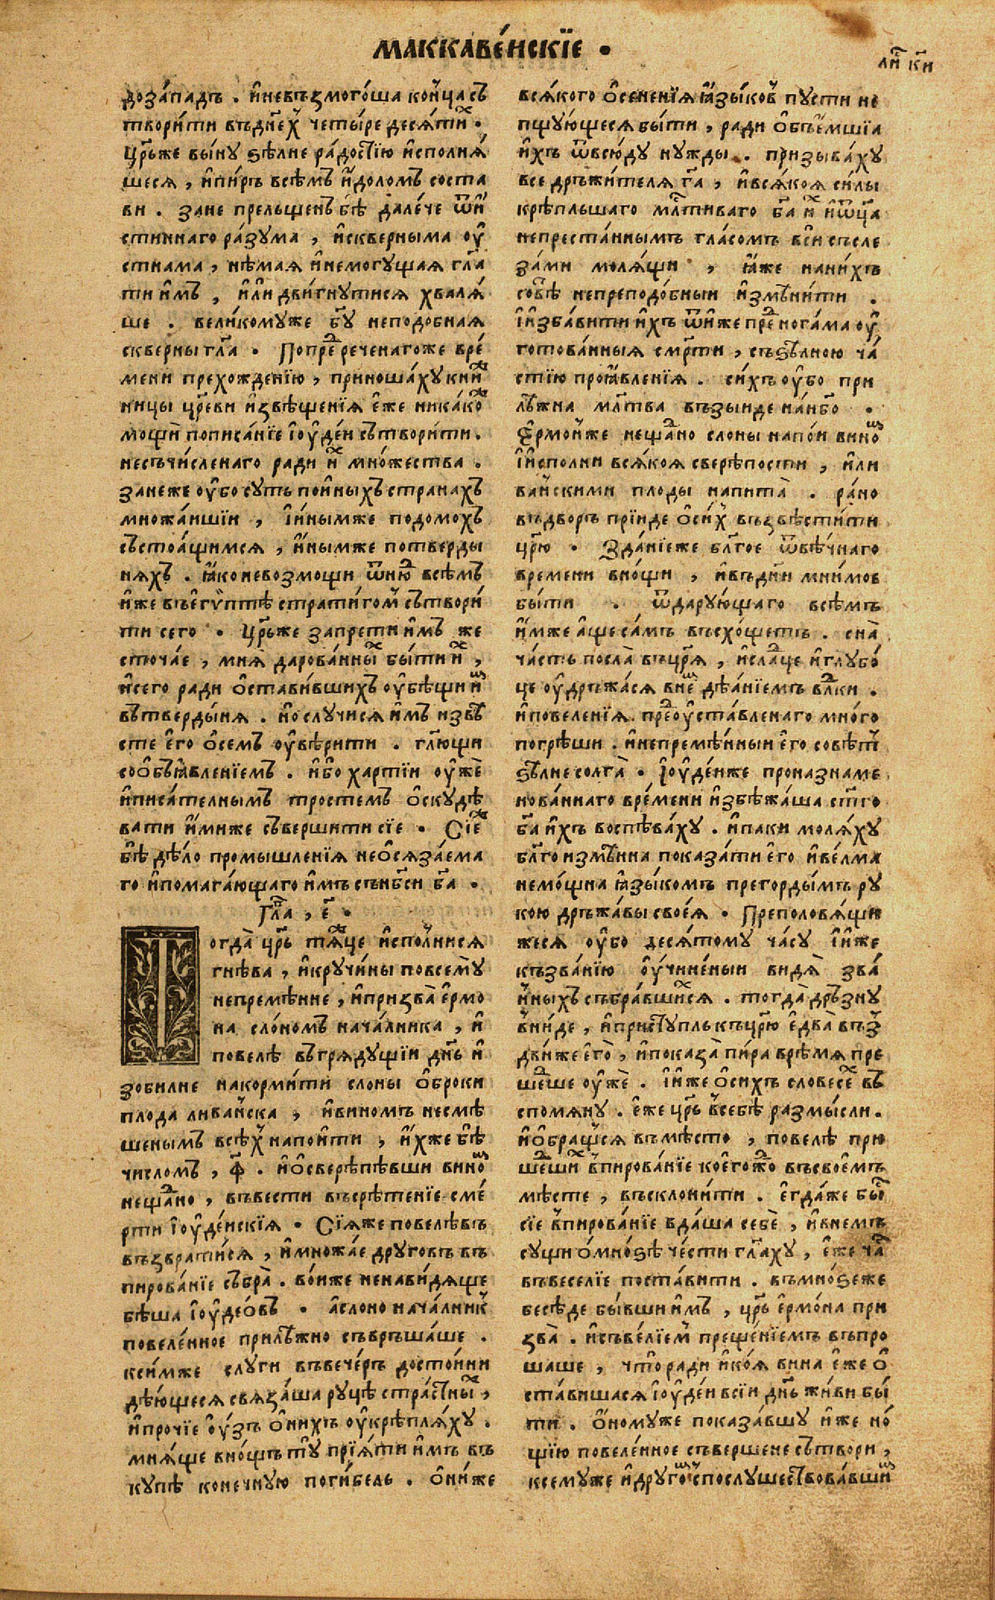 маккаве́нскїе ·
ли́ст к҃и
дозаⷫ́падъ . и҆невъзмого́ша конꙿца съ
твори́ти въдне́хꙿ четы́ре десѧ́ти́хъ ·
цр҃ьже вы́ну ѕѣ́лне ра́достїю и҆сполнѧ́
шесѧ , и҆пи́ръ всѣ́мъ и҆́доломъ соста
ви . зане прельще́нъ бѣ̀ дале́че ѿи҆́
стиннаго ра́зума , и҆скверныма оу҆
стнама , нѣ́маѧ и҆немогу́щаѧ гл҃а
ти и҆́мъ , и҆лѝ дви́гнутисѧ хвалѧ́
ше . вели́комуже бг҃у неподо́бнаѧ
скверны гл҃а . Попре́ждереченагоже вре́
мени прехожде́нїю , приноша́ху кни́ж
ницы цр҃еви и҆звѣще́нїѧ є҆́же никако́
мощѝ пописа́нїе і҆оуде́и сътвори́ти .
несъчи́сленаго ради и҆́хъ мно́жества .
зане́же оу҆́бо суть пои҆́ныхъ страна́хъ
множа́ишїи , і҆и҆́нымже подомо́хъ
състоѧ́щимсѧ , и҆и҆́нымже потверды
нѧхъ . ꙗ҆́коневозмо́щи ѿню́д всѣ́мъ
и҆́же въе҆гѵ́птѣ страти́гомꙿ сътвори́
ти сего . Цр҃ьже запрети и҆́мъ же
сточа́е , мнѧ̀ дарова́нны́хъ бы́ти и҆́хъ ,
и҆сего ради ѡ҆ста́вившихъ оу҆бѣщи́ и҆хъ
вътверды́нѧ . и҆ослучи́сѧ и҆́мъ извѣ́
сте є҆го ѡ҆се́мъ оу҆вѣ́рити . гл҃ющи
сооб̾ꙗ҆вле́нїемъ . и҆́бо ха́ртїи оу҆жѐ
и҆писа́телнымъ тро́стемъ ѡ҆скудѣ
вати и҆́миже съверши́ти сїе · Сїе́ж
бѣ̀ дѣ́ло промышле́нїѧ неѡ҆сѧза́ема
го и҆помага́ющаго и҆́мъ сънб҃си бг҃а ·
Гла҃ , є҃ ·
Тогда̀ цр҃ь тѧ́жце и҆сполнисѧ
гнѣ́ва , и҆кручи́ны повсемꙋ
непремѣ́нне , и҆призва̀ є҆рмо
на сло́номъ нача́лника , и҆
повелѣ̀ въгрѧду́щїи дн҃ь и҆
зоби́лне накорми́ти слоны ѡ҆броки
плода лива́иска , и҆вино́мъ несмѣ́
шенымъ всѣ́хꙿ напои́ти , и҆́хже бѣ̀
число́мъ , ф҃ . и҆ѡ҆сверѣпѣ́вши вино́м
неща́дно , въвести въсрѣ́тенїе сме́
рти і҆оуде́искїѧ · Сїѧ́же повелѣвъ
възврати́сѧ , и҆множа́е друго́въ въ
пирова́нїе събра̀ . во́иже ненави́дѧще
бѣ́ша і҆оуде́овъ · а҆слоно нача́лникꙿ
повеле́нное прилѣ́жно съврьша́ше .
ксимже слуги въве́черъ досто́ини
дѣ́ющесѧ свѧза́ша ру́цѣ стра́стны́м ,
и҆про́чїе оу҆́зъ ѡ҆ни́хъ оу҆крѣплѧ́ху .
мнѧ́ще вно́щъ ту прїѧ́ти и҆́мъ въ
ку́пѣ коне́чную поги́бель . ѡ҆ни́же
всѧ́кого ѡ҆сѣне́нїѧ ꙗ҆зы́ковꙿ пусти не
пщу́ющесѧ бы́ти , ради ѡ҆бъе́мшїа
и҆́хъ ѿвсю́ду ну́жды . призыва́ху
все дръжи́телѧ гд҃а , и҆всѧ́коѧ си́лы
крѣ́пльшаго млⷭ҇тиваго бг҃а и҆́хъ и҆ѿц҃а
непреста́ннымъ гла́сомъ вси съсле
за́ми молѧ́щи , ꙗ҆́же нани́хъ
совѣ́т непреподо́бныи и҆змѣни́ти .
і҆и҆зба́вити и҆́хъ ѿи҆́же пре́д нога́ма оу҆
гото́ванныѧ сме́рти , съѕѣ́лною ча́
стїю проꙗ҆вле́нїѧ . си́хъ оу҆бо при
лѣ́жна мл҃тва възы́де на́нб҃о .
Є҆рмо́нже неща́дно слоны напо́и вино́м
і҆и҆спо́лни всѧ́коѧ сверѣ́пости , и҆ли
ва́искими плоды напита̀ . ра́но
въдворъ прїиде ѡ҆си́хꙿ възвѣсти́ти
цр҃ю · Зда́нїеже бл҃гое ѿвѣ́чнаго
времени вно́щи , и҆въдни мни́мов
быти . ѿдару́ющаго всѣ́мъ
и҆́мже а҆́ще са́мъ въсхо́щетъ . сна̀
ча́сть посла̀ въцр҃ѧ , и҆сла́дце и҆глубо́
це оу҆дръжа́сѧ вне́м дѣѧ́нїемъ влⷣки .
и҆повеле́нїѧ преоу҆ста́вленаго мно́го
погрѣ́ши . и҆непремѣ́нныи є҆го совѣ́тꙿ
ѕѣ́лне солга̀ . І҆оуде́иже проназнаме
но́ваннаго вре́мени и҆збѣжа́ша ст҃го
бг҃а и҆́хъ воспѣва́ху . и҆па́ки молѧ́ху
бл҃гоизмѣ́нна показа́ти є҆го и҆ве́лма
немо́щна ꙗ҆зы́комъ прего́рдымъ ру
ко́ю дръжа́вы своеѧ̀ · Преполовѧ́щи
жесѧ оу҆́бо десѧ́тому ча́су і҆и҆́же
къзва́нїю оу҆чине́ныи видѧ̀ зва́
нныхъ събра́вши́хсѧ . тогда̀ дръзну
вни́де , и҆присту́пль къцр҃ю є҆два̀ въз
дви́же є҆го̀ , и҆показа̀ пи́ра врѣ́мѧ пре
ше́дше оу҆жѐ . і҆и҆́же ѡ҆си́хъ словесе́х въ
спомѧну . є҆́же цр҃ь всебѣ̀ размысли .
и҆ѡ҆бра́щсѧ въмѣ́сто , повелѣ̀ при
ше́дши́м впирова́нїе коего́ждо въсвое́мъ
мѣ́сте , въсклони́ти . є҆гда́же бы́
сїе впирова́нїе вда́ша себѐ , и҆вне́мъ
су́щи ѡ҆мно́ѕѣ че́сти гл҃аху , є҆́же ча́
въвесе́лїе поста́вити . въмно́ѕеже
бесѣ́де бы́вши и҆́мъ , цр҃ь є҆рмо́на при
зва̀ . и҆съве́лїемꙿ преще́нїемъ въпро
ша́ше , что́ ради и҆коѧ́ вина є҆́же ѡ҆
ста́вишасѧ і҆оуде́и вси дн҃ь жи́ви бы́
ти . ѡ҆номуже показа́вшу и҆́же но́
щїю повеле́нное съверше́не сътвори ,
ксемуже и҆друго́м спослу́шествова́вши́м